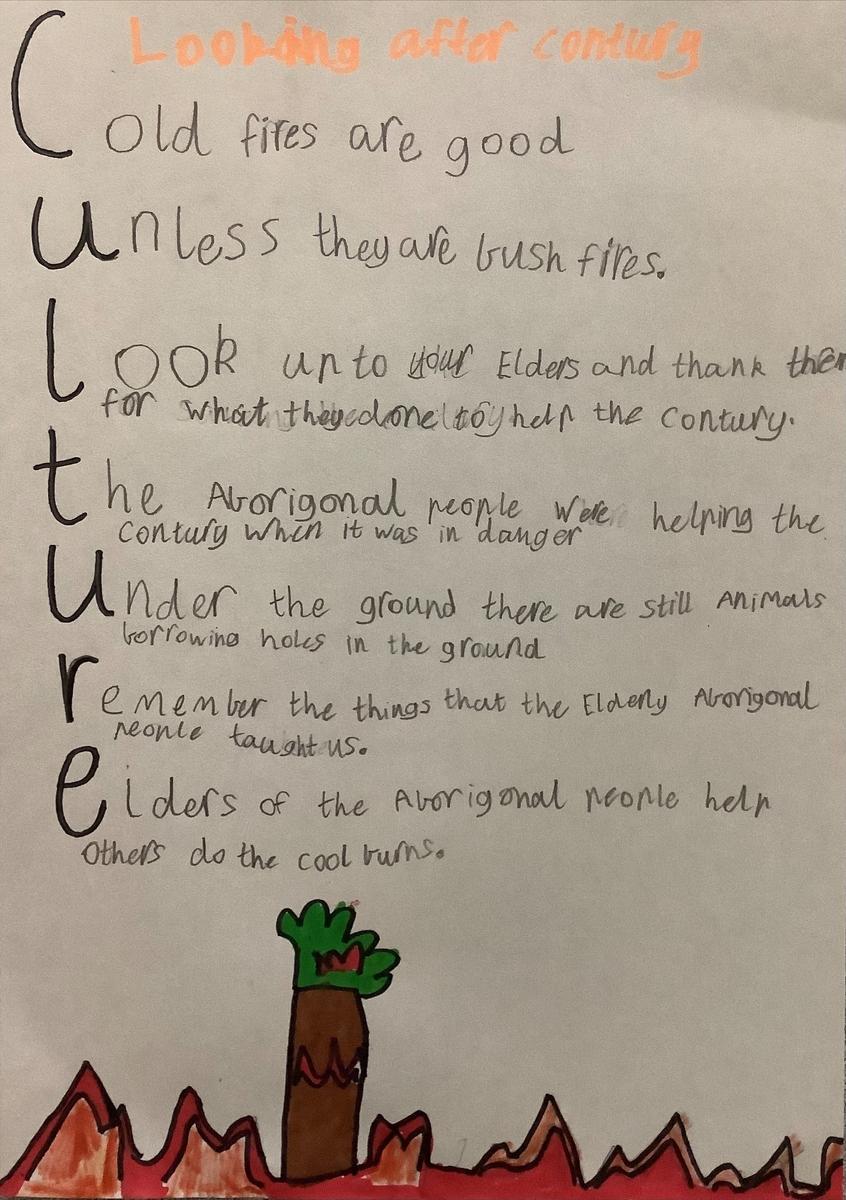 Looking after contury
Cold fires are good
unless they are bush fires.
look up to your Elders and thank them
for what they done to help the contury.
the Aborigonal people were helping the
contury when it was in danger
under the ground there are still Animals
borrowing holes in the ground
remember the things that the Elderly Aborigonal
people taught us.
elders of the Aborigonal people help
others do the cool burns.